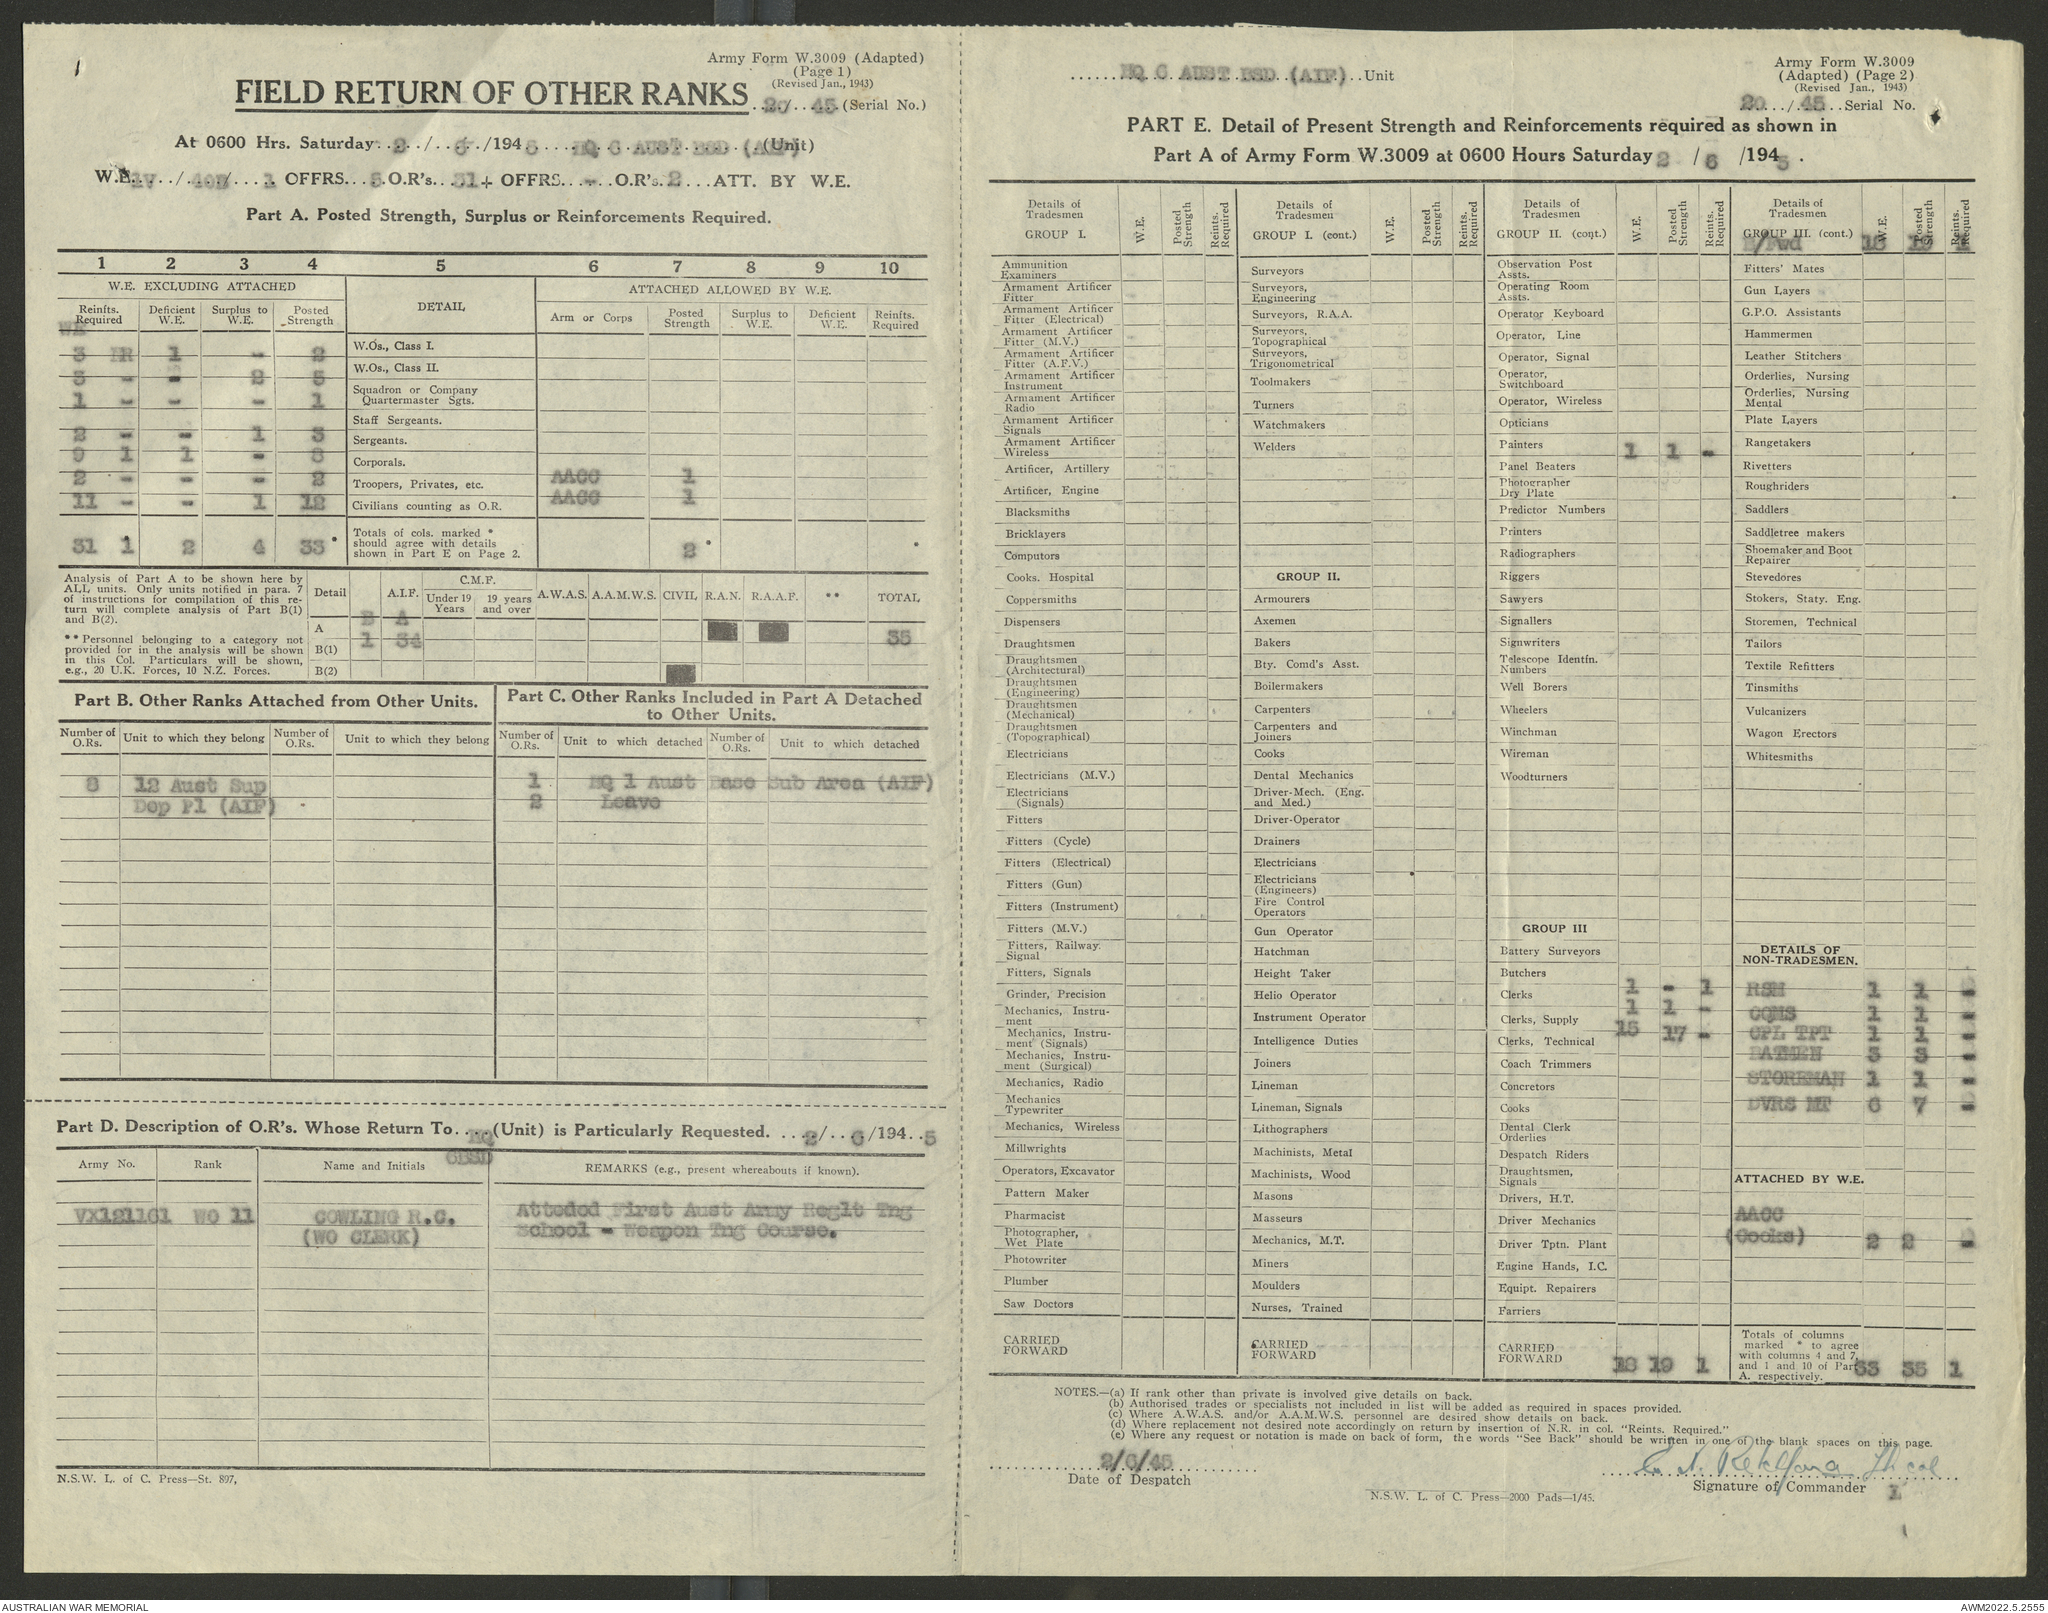 Army Form W.3009 (Adapted)
(Page 1)
(Revised Jan., 1943)
FIELD RETURN OF OTHER RANKS 20/45 (Serial No.)
At 0600 Hrs. Saturday 2/6/1945 HQ 6 AUST BSD (AIF) (Unit)
W.E. 1V/ / 1 OFFRS 5 O.R's. 31 + OFFRS - O.R's. 2 ATT. BY W.E.
Part A. Posted Strength, Surplus or Reinforcements Required.
1 2 3 4 5 6 7 8 9 10
W.E. EXCLUDING ATTACHED DETAIL ATTACHED ALLOWED BY W.E.
Reinfts. Required Deficient W.E. Surplus to W.E. Posted Strength Arm or Corps Posted Strength Surplus to W.E. Deficient W.E. Reinfts. Required
WE
3 NR 1 - 2 W.Os., Class I.
3 - - 2 5 W.Os., Class II.
1 - - - 1 Squadron or Company Quartermaster Sgts.
2 - - 1 3 Staff Sergeants.
9 1 1 - 8 Sergeants.
2 - - - 2 Corporals.
Troopers, Privates, etc. AACC 1
11 - - 1 12 Civilians counting as O.R. AACC 1
31 1* 2 4 33* Totals of cols. marked * should agree with details shown in Part E on Page 2. 2* *
Analysis of Part A to be shown here by
ALL units. Only units notified in para. 7
of instructions for compilation of this re-
turn will complete analysis of Part B(1)
and B(2).
** Personnel belonging to a category not
provided for in the analysis will be shown
in this Col. Particulars will be shown,
e.g., 20 U.K. Forces, 10 N.Z. Forces.
Detail A.I.F. C.M.F. Under 19 Years 19 years and over A.W.A.S. A.A.M.W.S. CIVIL R.A.N. R.A.A.F. ** TOTAL
B A
A
1 34 35
B(1)
B(2)
Part B. Other Ranks Attached from Other Units.
Number of O.Rs. Unit to which they belong Number of O.Rs. Unit to which they belong
8 12 Aust Sup
Dep Pl (AIF)
Part C. Other Ranks Included in Part A Detached
to Other Units.
Number of O.Rs. Unit to which detached Number of O.Rs. Unit to which detached
1 HQ 1 Aust Base Sub Area (AIF)
2 Leave
Part D. Description of O.R's. Whose Return To HQ 6BSD (Unit) is Particularly Requested. 2/6/1945
Army No. Rank Name and Initials REMARKS (e.g., present whereabouts if known).
VX121161 WO 11 COWLING R.G. Atteded First Aust Army Reglt Tng
(WO CLERK) School - Weapon Tng Course.
N.S.W. L. of C. Press—St. 897,
HQ 6 AUST BSD (AIF) Unit
Army Form W.3009
(Adapted) (Page 2)
(Revised Jan., 1943)
20/45 Serial No.
PART E. Detail of Present Strength and Reinforcements required as shown in
Part A of Army Form W.3009 at 0600 Hours Saturday 2/6/1945.
Details of Tradesmen GROUP I. W.E. Posted Strength Reints. Required
Ammunition Examiners
Armament Artificer Fitter
Armament Artificer Fitter (Electrical)
Armament Artificer Fitter (M.V.)
Armament Artificer Fitter (A.F.V.)
Armament Artificer Instrument
Armament Artificer Radio
Armament Artificer Signals
Armament Artificer Wireless
Artificer, Artillery
Artificer, Engine
Blacksmiths
Bricklayers
Computors
Cooks. Hospital
Coppersmiths
Dispensers
Draughtsmen
Draughtsmen (Architectural)
Draughtsmen (Engineering)
Draughtsmen (Mechanical)
Draughtsmen (Topographical)
Electricians
Electricians (M.V.)
Electricians (Signals)
Fitters
Fitters (Cycle)
Fitters (Electrical)
Fitters (Gun)
Fitters (Instrument)
Fitters (M.V.)
Fitters, Railway. Signal
Fitters, Signals
Grinder, Precision
Mechanics, Instru-ment
Mechanics, Instru-ment (Signals)
Mechanics, Instru-ment (Surgical)
Mechanics, Radio
Mechanics Typewriter
Mechanics, Wireless
Millwrights
Operators, Excavator
Pattern Maker
Pharmacist
Photographer, Wet Plate
Photowriter
Plumber
Saw Doctors
CARRIED FORWARD
Details of Tradesmen GROUP I. (cont.) W.E. Posted Strength Reints. Required
Surveyors
Surveyors, Engineering
Surveyors, R.A.A.
Surveyors, Topographical
Surveyors, Trigonometrical
Toolmakers
Turners
Watchmakers
Welders
GROUP II.
Armourers
Axemen
Bakers
Bty. Comd's Asst.
Boilermakers
Carpenters
Carpenters and Joiners
Cooks
Dental Mechanics
Driver-Mech. (Eng. and Med.)
Driver-Operator
Drainers
Electricians
Electricians (Engineers)
Fire Control Operators
Gun Operator
Hatchman
Height Taker
Helio Operator
Instrument Operator
Intelligence Duties
Joiners
Lineman
Lineman, Signals
Lithographers
Machinists, Metal
Machinists, Wood
Masons
Masseurs
Mechanics, M.T.
Miners
Moulders
Nurses, Trained
CARRIED FORWARD
Details of Tradesmen GROUP II. (cont.) W.E. Posted Strength Reints. Required
Observation Post Assts.
Operating Room Assts.
Operator Keyboard
Operator, Line
Operator, Signal
Operator, Switchboard
Operator, Wireless
Opticians
Painters 1 1 -
Panel Beaters
Photographer Dry Plate
Predictor Numbers
Printers
Radiographers
Riggers
Sawyers
Signallers
Signwriters
Telescope Identfn. Numbers
Well Borers
Wheelers
Winchman
Wireman
Woodturners
GROUP III
Battery Surveyors
Butchers
Clerks 1 - 1
Clerks, Supply 1 1 -
Clerks, Technical 15 17 -
Coach Trimmers
Concretors
Cooks
Dental Clerk Orderlies
Despatch Riders
Draughtsmen, Signals
Drivers, H.T.
Driver Mechanics
Driver Tptn. Plant
Engine Hands, I.C.
Equipt. Repairers
Farriers
CARRIED FORWARD 18 19 1
Details of Tradesmen GROUP III. (cont.) W.E. Posted Strength Reints. Required
B/Fwd 18 19 1
Fitters' Mates
Gun Layers
G.P.O. Assistants
Hammermen
Leather Stitchers
Orderlies, Nursing
Orderlies, Nursing Mental
Plate Layers
Rangetakers
Rivetters
Roughriders
Saddlers
Saddletree makers
Shoemaker and Boot Repairer
Stevedores
Stokers, Staty. Eng.
Storemen, Technical
Tailors
Textile Refitters
Tinsmiths
Vulcanizers
Wagon Erectors
Whitesmiths
DETAILS OF NON-TRADESMEN.
RSM 1 1 -
CQMS 1 1 -
CPL TPT 1 1 -
BATMEN 3 3 -
STOREMAN 1 1 -
DVRS MT 6 7 -
ATTACHED BY W.E.
AACC
(Cooks) 2 2 -
Totals of columns marked * to agree with columns 4 and 7, and 1 and 10 of Part A. respectively. 33 35 1
NOTES.—(a) If rank other than private is involved give details on back.
(b) Authorised trades or specialists not included in list will be added as required in spaces provided.
(c) Where A.W.A.S. and/or A.A.M.W.S. personnel are desired show details on back.
(d) Where replacement not desired note accordingly on return by insertion of N.R. in col. "Reints. Required."
(e) Where any request or notation is made on back of form, the words "See Back" should be written in one of the blank spaces on this page.
2/6/45
Date of Despatch
Lt col
Signature of Commander
N.S.W. L. of C. Press—2000 Pads—1/45.
AUSTRALIAN WAR MEMORIAL
AWM2022.5.2555